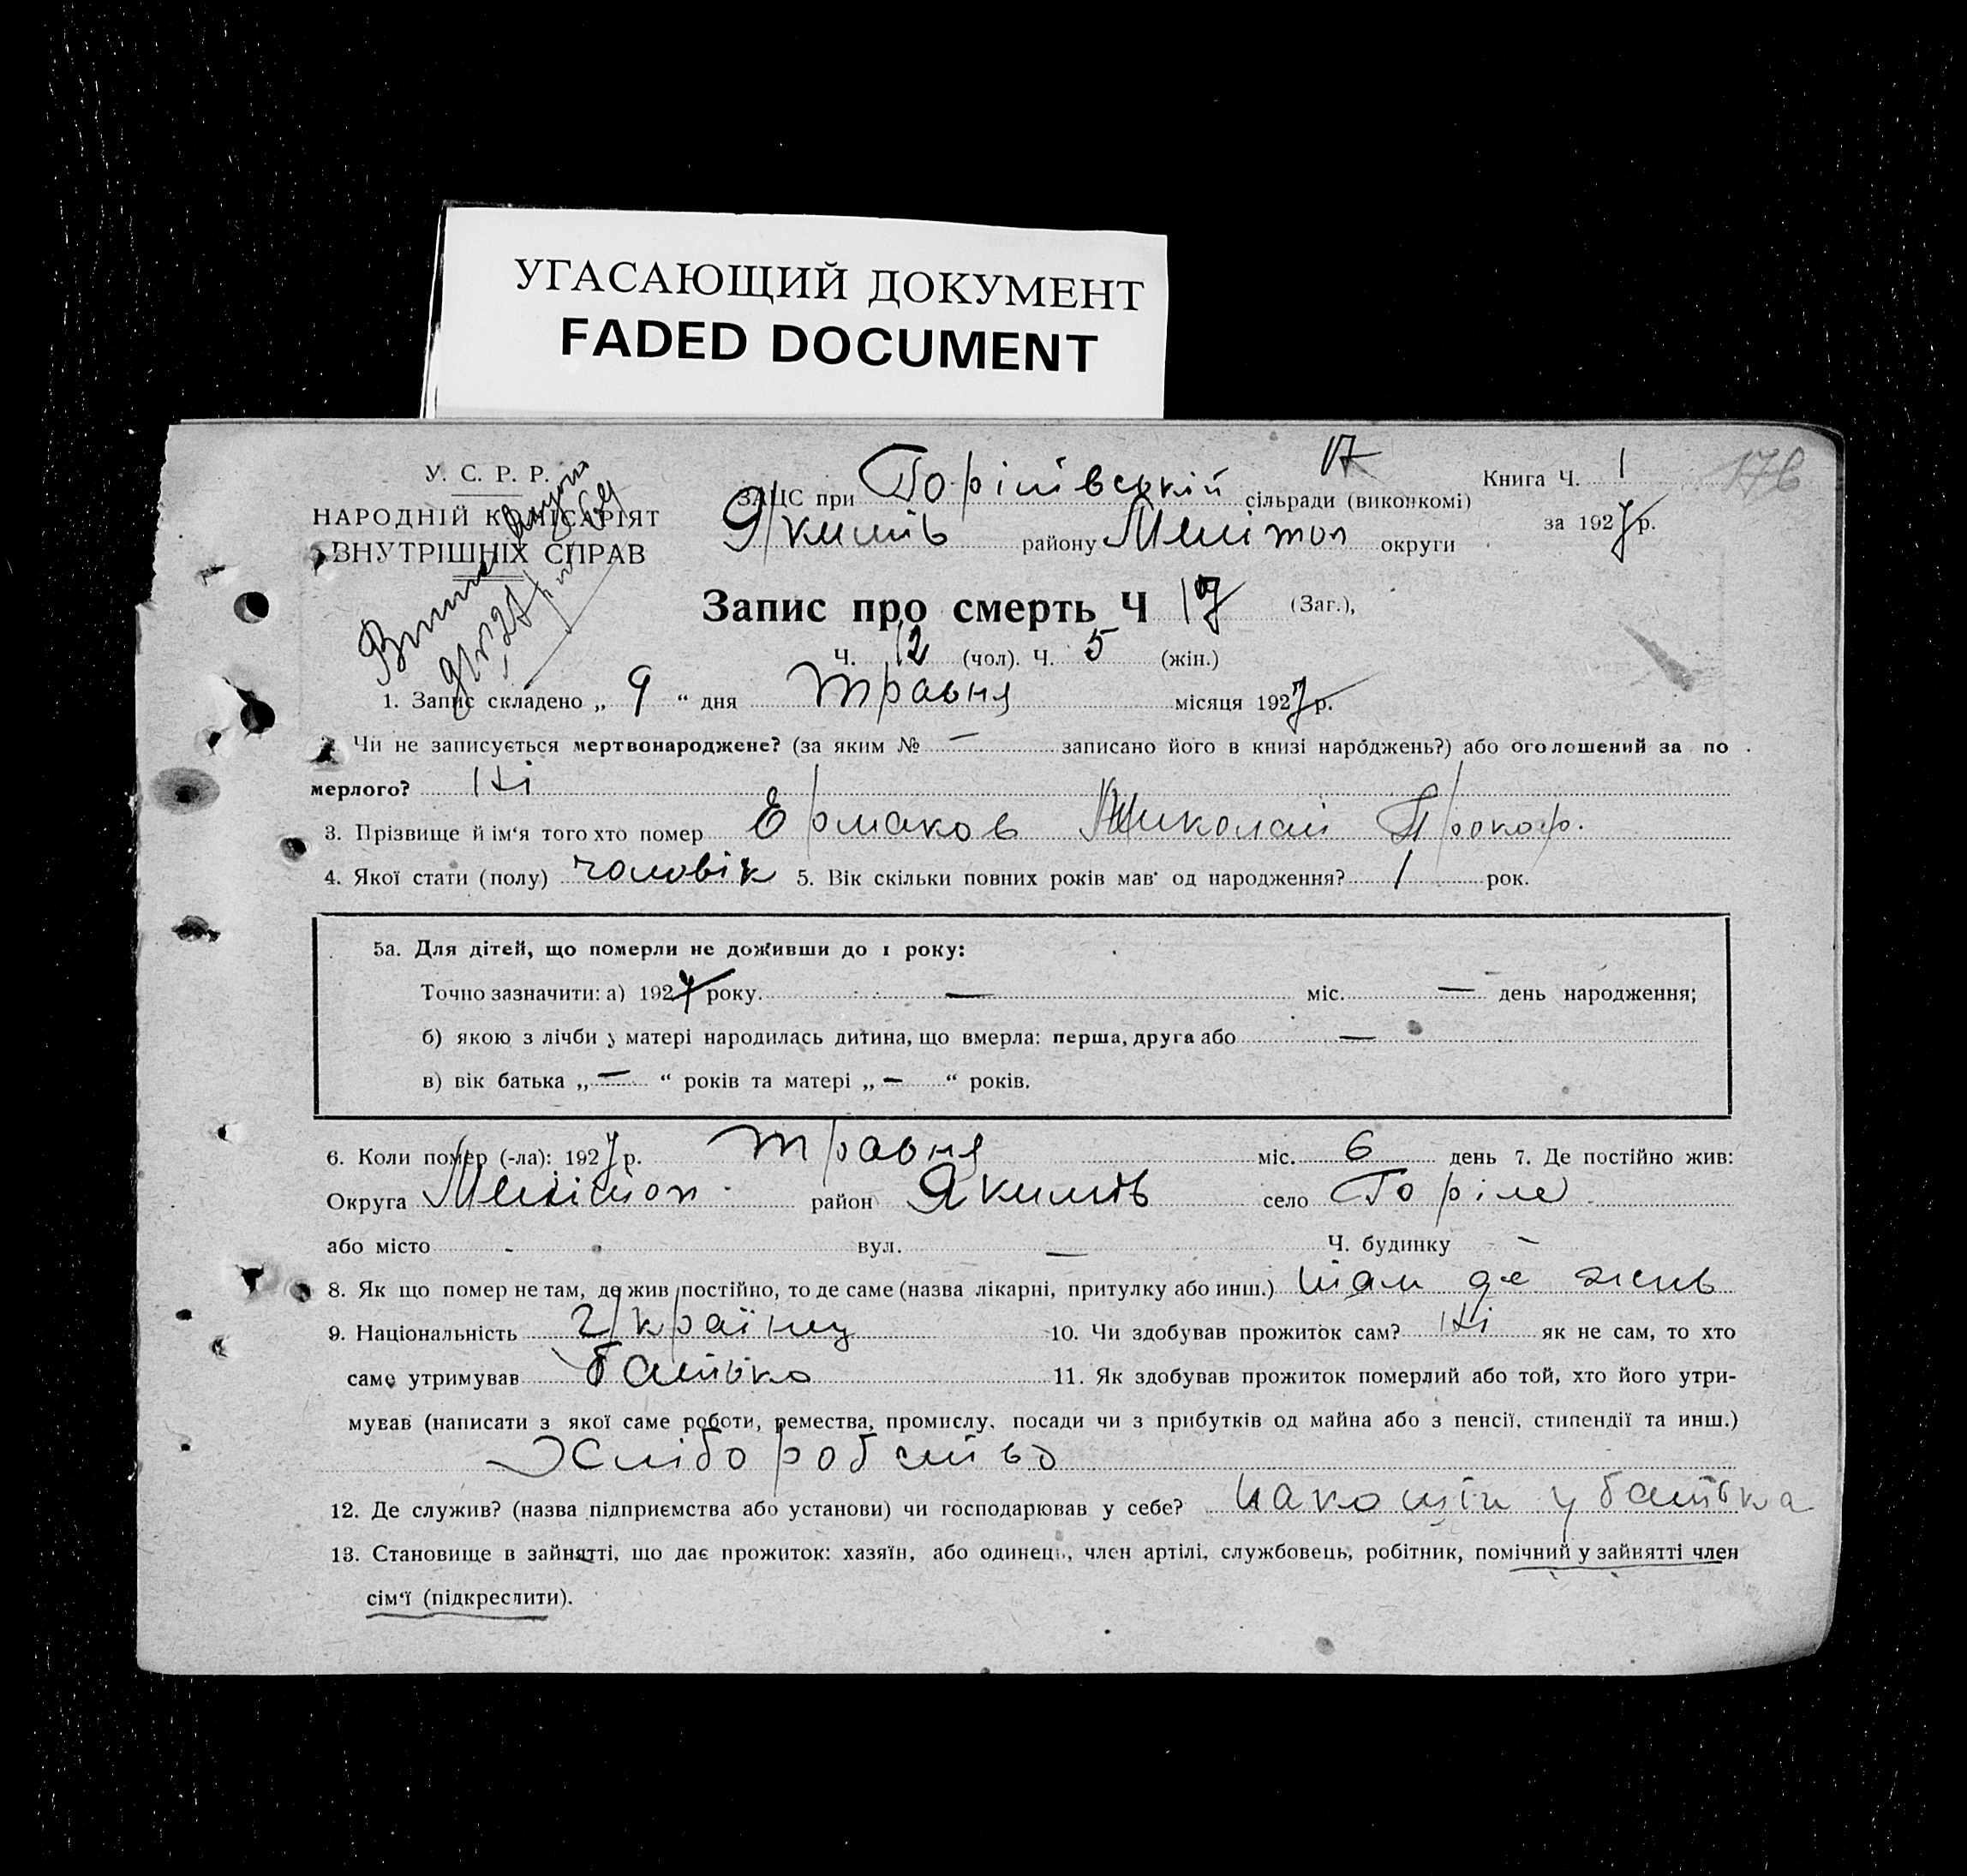 УГАСАЮЩИЙ ДОКУМЕНТ
FADED DOCUMENT
У. С. Р. Р.
НАРОДНІЙ КОМІСАРІЯТ
ВНУТРІШНІХ СПРАВ
ЗАЦС при Горілівській сільради (виконкомі)
17
Книга Ч. 1
176
Якимів району Мелітоп округи
за 1927 р.
Запис про смерть Ч 17 (Заг.),
Ч. 12 (чол). Ч. 5 (жін.)
1. Запис складено „ 9 “ дня травня місяця 1927 р.
2. Чи не записується мертвонароджене? (за яким № — записано його в книзі народжень?) або оголошений за по
мерлого? Ні
3. Прізвище й ім‘я того хто помер Ермаков Николай Прокоф.
4. Якої стати (полу) чоловік 5. Вік скільки повних років мав‘ од народження? 1 рок.
5а. Для дітей, що померли не доживши до 1 року:
Точно зазначити: а) 1927 року. — міс. — день народження;
б) якою з лічби у матері народилась дитина, що вмерла: перша, друга або —
в) вік батька „ — “ років та матері „ — “ років.
6. Коли помер (-ла): 1927 р. травня міс. 6 день 7. Де постійно жив:
Округа Мелітоп. район Якимів село Горіле
або місто - вул. — Ч. будинку –
8. Як що помер не там, де жив постійно, то де саме (назва лікарні, притулку або инш.) там де жив
9. Національність Україну 10. Чи здобував прожиток сам? Ні як не сам, то хто
саме утримував батько 11. Як здобував прожиток померлий або той, хто його утри-
мував (написати з якої саме роботи, ремества, промислу, посади чи з прибутків од майна або з пенсії, стипендії та инш.)
Хліборобство
12. Де служив? (назва підприємства або установи) чи господарював у себе? у батька
13. Становище в зайнятті, що дає прожиток: хазяїн, або одинець, член артілі, службовець, робітник, помічний у зайнятті член
сім‘ї (підкреслити).